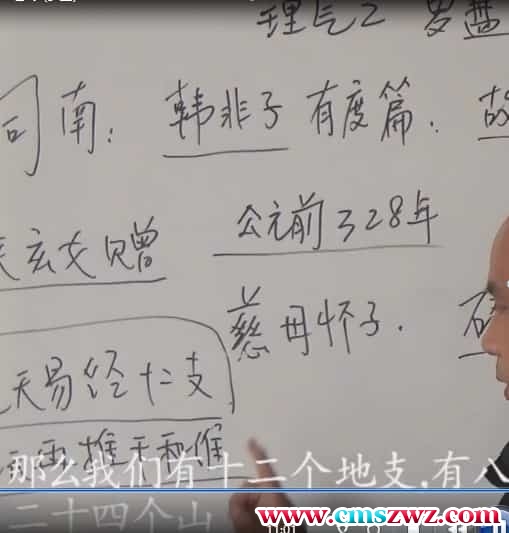 理气之 罗盘
司南: 韩非子 有度篇. 故
公元前328年
玄女赠
慈母怀子.
天易经十二支
那么我们有十二个地支,有八
二十四个山
www.cmszwz.com